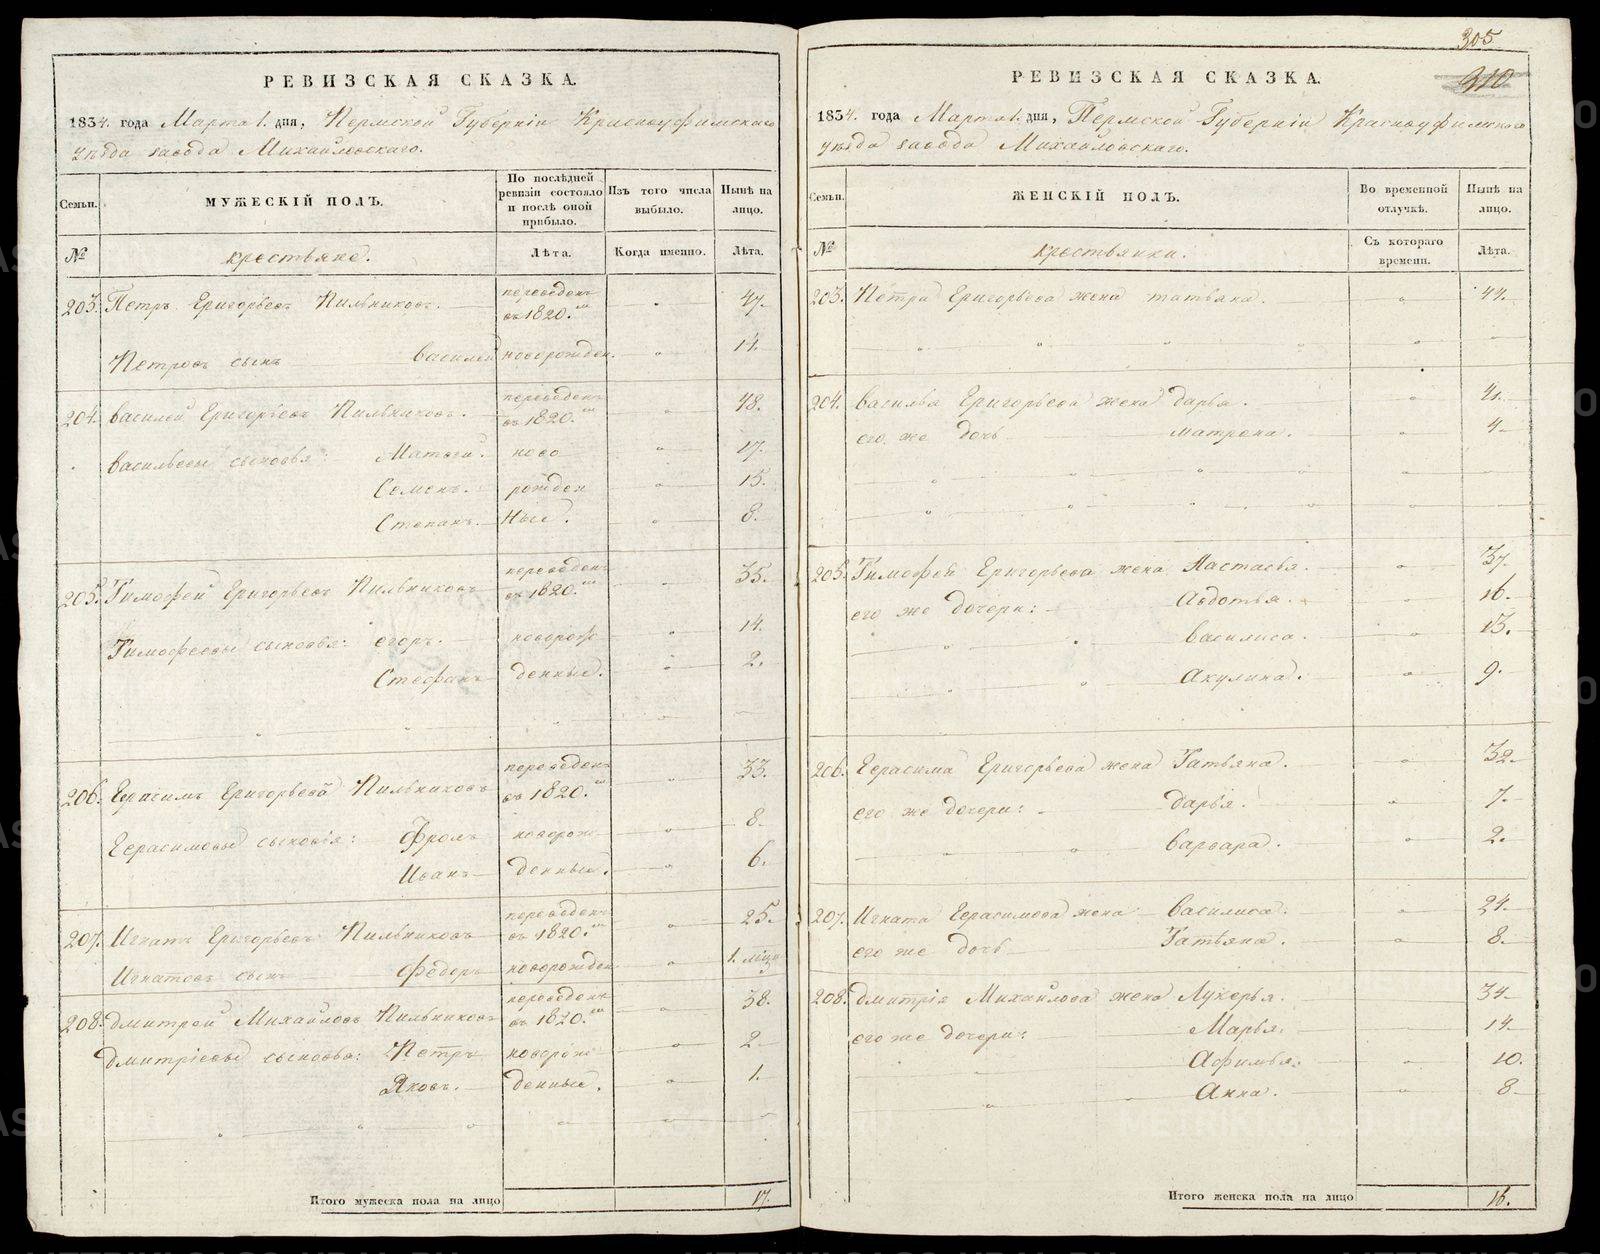 305
310
РЕВИЗСКАЯ СКАЗКА.
1834. года Марта 1. дня, Пермской Губерніи Красноуфимскаго
уѣзда завода Михайловскаго.
Семьи.
МУЖЕСКІЙ ПОЛЪ.
По послѣдней ревизіи состояло и послѣ оной прибыло.
Изъ того числа выбыло.
Нынѣ на лицо.
№
крестьяне.
Лѣта.
Когда именно.
Лѣта.
203. Петръ Григорьевъ Пильниковъ. переведенъ въ 1820.мъ 47.
Петровъ сынъ Василей новорожден. 14.
204. Василей Григорьевъ Пильниковъ. переведенъ въ 1820.мъ 48.
Васильевы сыновья: Матвей. ново 17.
Семенъ. рожден 15.
Степанъ. ные. 8.
205. Тимофей Григорьевъ Пильниковъ переведенъ въ 1820.мъ 35.
Тимофеевы сыновья: Егоръ. новорож 14.
Стефанъ денные. 2.
206. Герасимъ Григорьевъ Пильниковъ переведенъ въ 1820.мъ 33.
Герасимовы сыновья: Фролъ новорож 8.
Иванъ денные. 6.
207. Игнатъ Григорьевъ Пильниковъ переведенъ въ 1820.мъ 25.
Игнатовъ сынъ Федоръ новорожден
208. Дмитрей Михайловъ Пильниковъ переведенъ въ 1820.мъ 38.
Дмитріевы сыновья: Петръ новорож 2.
Яковъ. денные. 1.
Итого мужеска пола на лицо 17.
РЕВИЗСКАЯ СКАЗКА.
1834. года Марта 1. дня, Пермской Губерніи Красноуфимскаго
уѣзда завода Михайловскаго.
Семьи.
ЖЕНСКІЙ ПОЛЪ.
Во временной отлучкѣ.
Нынѣ на лицо.
№
крестьянки.
Съ котораго времени.
Лѣта.
203. Петра Григорьева жена Татьяна. 44.
204. Василья Григорьева жена Дарья. 41.
его же дочь Матрена. 4.
205. Тимофея Григорьева жена Настасья. 37.
его же дочери: Авдотья. 16.
Василиса. 15.
Акулина. 9.
206. Герасима Григорьева жена Татьяна. 32.
его же дочери: Дарья. 7.
Варвара. 2.
207. Игната Герасимова жена Василиса. 24.
его же дочь Татьяна. 8.
208. Дмитрія Михайлова жена Лукерья. 34.
его же дочери: Марья. 14.
Афимья. 10.
Анна. 8
Итого женска пола на лицо 16.
METRIKI.GASO-URAL.RU